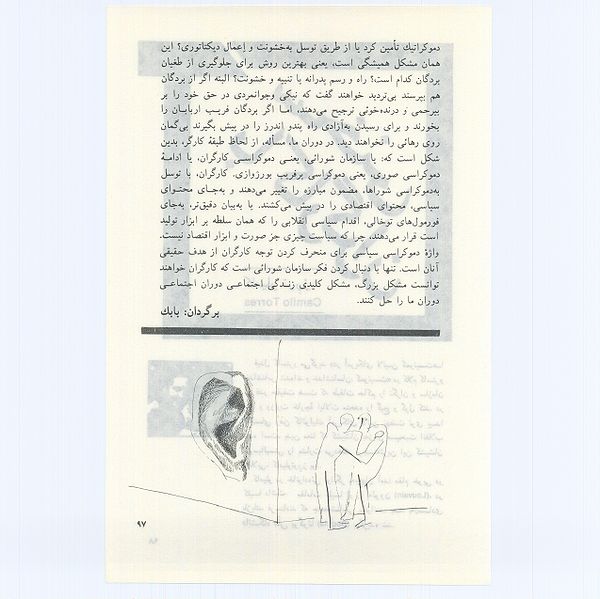 دموکراتیك تأمین کرد یا از طریق توسل به‌خشونت و اِعمال دیکتاتوری؟ این
همان مشکل همیشگی است، یعنی بهترین روش برای جلوگیری از طغیان
بردگان کدام است؟ راه و رسم پدرانه یا تنبیه و خشونت؟ البته اگر از بردگان
هم بپرسند بی‌تردید خواهند گفت که نیکی وجوانمردی در حق خود را بر
بیرحمی و درنده‌خوئی ترجیح می‌دهند، اما اگر بردگان فریب اربابان را
بخورند و برای رسیدن به‌آزادی راه پندو اندرز را در پیش بگیرند بی‌گمان
روی رهائی را نخواهند دید. در دوران ما، مسأله، از لحاظ طبقهٔ کارگر، بدین
شکل است که: یا سازمان شورائی، یعنی دموکراسی کارگران، یا ادامهٔ
دموکراسی صوری، یعنی دموکراسی پرفریب بورژوازی. کارگران، با توسل
به‌دموکراسی شوراها، مضمون مبارزه را تغییر می‌دهند و به‌جای محتوای
سیاسی، محتوای اقتصادی را در پیش می‌کشند. یا به‌بیان دقیق‌تر، به‌جای
فورمول‌های توخالی، اقدام سیاسی انقلابی را که همان سلطه بر ابزار تولید
است قرار می‌دهند، چرا که سیاست چیزی جز صورت و ابزار اقتصاد نیست.
واژهٔ دموکراسی سیاسی برای منحرف کردن توجه کارگران از هدف حقیقی
آنان است. تنها با دنبال کردن فکر سازمان شورائی است که کارگران خواهند
توانست مشکل بزرگ، مشکل کلیدی زندگی اجتماعی دوران اجتماعی
دوران ما را حل کنند.
برگردان: بابك
۹۷